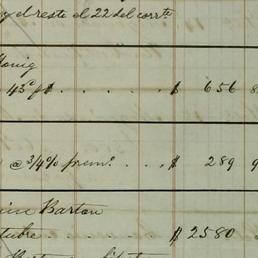 y el resto el 22 del corrte
Honig
43 c/ p$ . . . . . $ 656 8
@ 3/4% prem° . . . . $ 289 9
Barton
tubre . . . . . . . . $ 2580